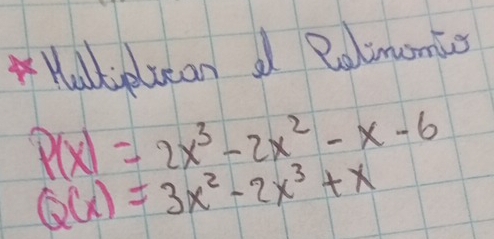 * Multiplican el Polinomio
P(x) = 2x³ - 2x² - x - 6
Q(x) = 3x² - 2x³ + x